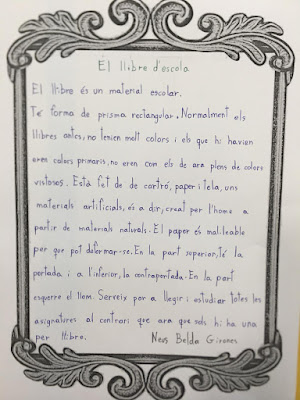 El llibre d'escola
El llibre és un material escolar.
Té forma de prisma rectangular. Normalment els
llibres antes, no tenien molt colors i els que hi havien
eren colors primaris, no eren com els de ara plens de colors
vistosos. Està fet de de cartró, paper i tela, uns
materials artificials, és a dir, creat per l'home a
partir de materials naturals. El paper és mal·leable
per que pot doformar-se. En la part superior, té la
portada i a l'inferior, la contraportada. En la part
esquerre el llom. Serveix por a llegir i estudiar totes les
asignatures al contrari que ara que sols hi ha una
per llibre. Neus Belda Gironés